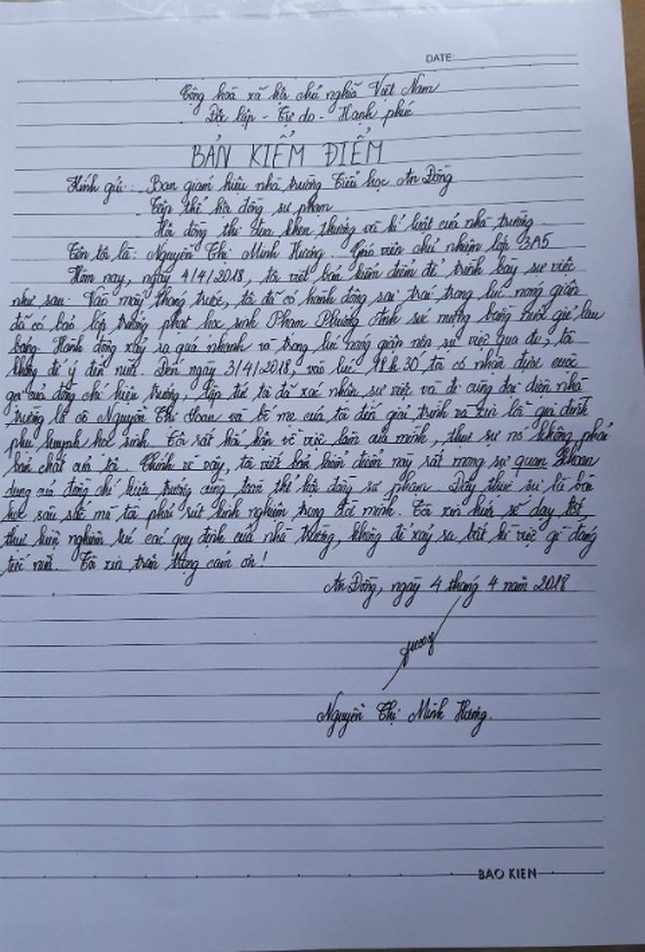 DATE:
Cộng hoà xã hội chủ nghĩa Việt Nam
Độc lập - Tự do - Hạnh phúc
BẢN KIỂM ĐIỂM
Kính gửi: Ban giám hiệu nhà trường Tiểu học An Đồng
Tập thể hội đồng sư phạm
Hội đồng thi đua khen thưởng và kỉ luật của nhà trường
Tên tôi là: Nguyễn Thị Minh Hương. Giáo viên chủ nhiệm lớp 3A5
Hôm nay, ngày 4/4/2018, tôi viết bản kiểm điểm để trình bày sự việc
như sau: Vào mấy tháng trước, tôi đã có hành động sai trái trong lúc nóng giận
đã có bảo lớp trưởng phạt học sinh Phạm Phương Anh súc miệng bằng nước giẻ lau
bảng. Hành động xảy ra quá nhanh và trong lúc nóng giận nên sự việc qua đi, tôi
không để ý đến nữa. Đến ngày 3/4/2018, vào lúc 18h30' tôi có nhận được cuộc
gọi của đồng chí hiệu trưởng, lập tức tôi đã xác nhận sự việc và đi cùng đại diện nhà
trường là cô Nguyễn Thị Loan và bố mẹ của tôi đến giải trình và xin lỗi gia đình
phụ huynh học sinh. Tôi rất hối hận về việc làm của mình, thực sự nó không phải
bản chất của tôi. Chính vì vậy, tôi viết bản kiểm điểm này rất mong sự quan khoan
dung của đồng chí hiệu trưởng cùng toàn thể hội đồng sư phạm. Đây thực sự là bài
học sâu sắc mà tôi phải rút kinh nghiệm trong đời mình. Tôi xin hứa sẽ dạy tốt
thực hiện nghiêm túc các quy định của nhà trường, không để xảy ra bất kì việc gì đáng
tiếc nữa. Tôi xin trân trọng cảm ơn!
An Đồng, ngày 4 tháng 4 năm 2018
Hương
Nguyễn Thị Minh Hương.
BAO KIEN